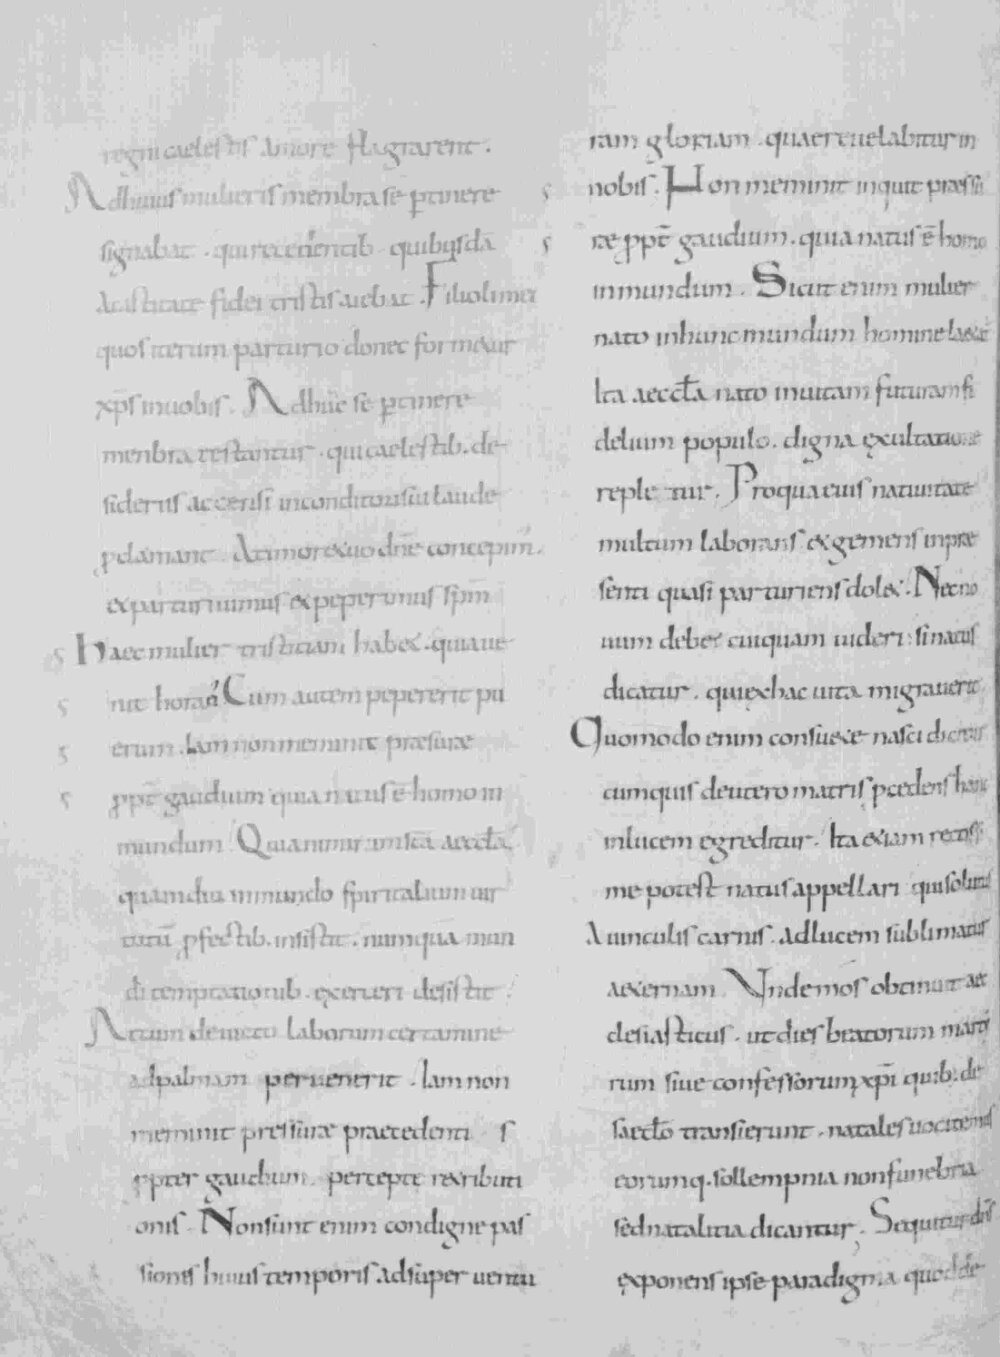 regni caelestis amore flagrarent.
Ad huius mulieris membra se ptinere
signabat . qui recenientib . quibusdā
a castitate fidei tristis aiebat . Filioli mei
quos iterum parturio donec formetur
xp̄s in uobis . Adhuc se ptinere
menbra testantur . qui caelestib . de
sideriis accensi in conditoris sui laude
pclamant . A timore tuo dn̄e concepim̄.
et parturiuimus et peperimus sp̄m
haec mulier tristitiam habet . quia ue
nit hora Cum autem pepererit pu
erum . Iam non meminit praesurae
ppt̄ gaudium quia natus ē homo in
mundum Quia nimirum sc̄a aeccl̄a
quamdiu in mundo spiritalium uir
tutū pfectib . insistit . numquā mun
di temptationib . exerceri desistit
At cum deuicto laborum certamine
ad palmam peruenerit . Iam non
meminit pressurae praecedenti s
ppter gaudium . percepte retributi
onis . Non sunt enim condigne pas
siones huius temporis ad super uentu
ram gloriam . quae reuelabitur in
nobis . Hon meminit inquit praessu
rae ppt̄ gaudium . quia natus ē homo
in mundum . Sicut enim mulier
nato in hunc mundum homine laetat
Ita aeccl̄a nato in uitam futuram fi
delium populo . digna exultatione
repletur . Pro qua eius natiuitate
multum laborans et gemens in pre
senti quasi parturiens dolet . Nec no
uum debet cuiquam uideri : si natus
dicatur . qui ex hac uita migrauerit
Quomodo enim consuete nasci dicitur
cum quis de utero matris pcedens hanc
in lucem egreditur . Ita etiam rectissi
me potest natus appellari qui solutus
A uinculis carnis . ad lucem sublimatus
aeternam Vnde mos obtinuit aec
clesiasticus . ut dies beatorum marty
rum siue confessorum xp̄i quib . de
saecl̄o transierunt . natales uocitemus
eorumq . sollempnia non funebria
sed natalitia dicantur . Sequitur dn̄s
exponens ipse paradigma quod de